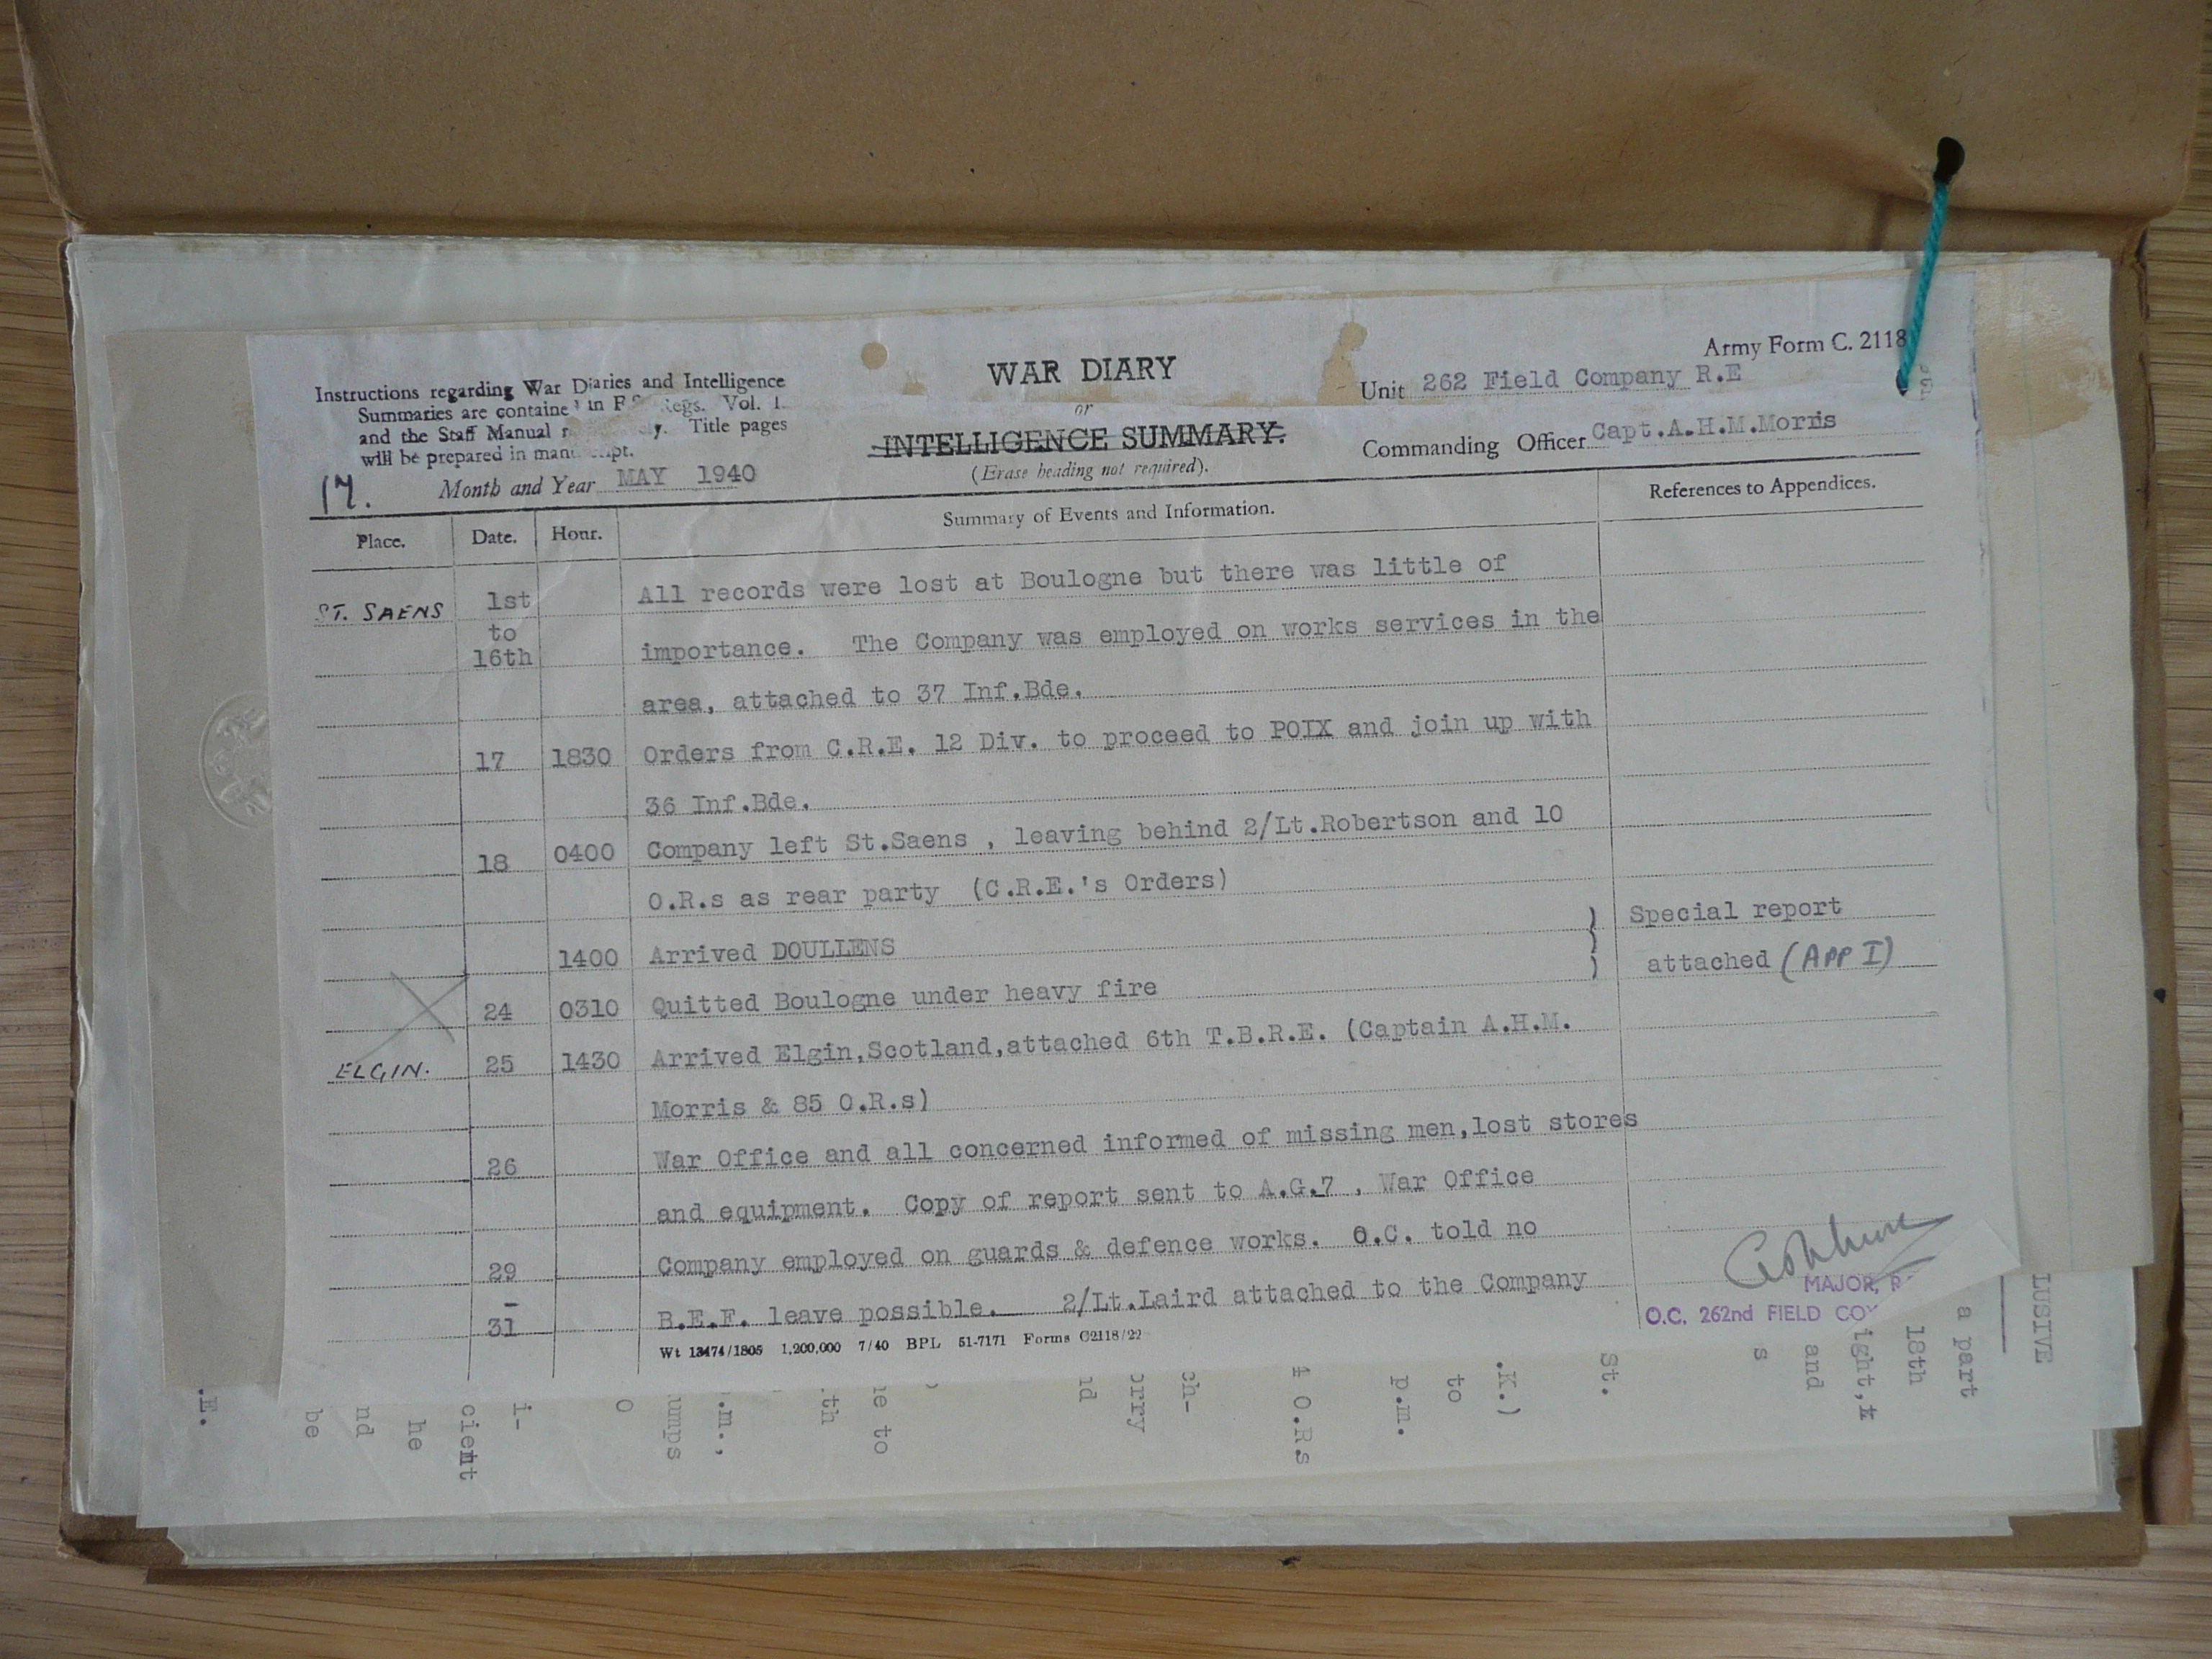 Army Form C. 2118
WAR DIARY
or
INTELLIGENCE SUMMARY.
(Erase heading not required).
Instructions regarding War Diaries and Intelligence
Summaries are contained in F.S. Regs. Vol. 1.
and the Staff Manual Title pages
will be prepared in manuscript.
17.
Month and Year MAY 1940
Unit 262 Field Company R.E
Commanding Officer Capt.A.H.M.Morris
Place. Date. Hour. Summary of Events and Information. References to Appendices.
ST. SAENS 1st All records were lost at Boulogne but there was little of
to
16th importance. The Company was employed on works services in the
area, attached to 37 Inf.Bde.
17 1830 Orders from C.R.E. 12 Div. to proceed to POIX and join up with
36 Inf.Bde.
18 0400 Company left St.Saens , leaving behind 2/Lt.Robertson and 10
O.R.s as rear party (C.R.E.'s Orders)
1400 Arrived DOULLENS } Special report
24 0310 Quitted Boulogne under heavy fire attached (APP I)
ELGIN. 25 1430 Arrived Elgin,Scotland,attached 6th T.B.R.E. (Captain A.H.M.
Morris & 85 O.R.s)
26 War Office and all concerned informed of missing men,lost stores
and equipment. Copy of report sent to A.G.7 , War Office
29 Company employed on guards & defence works. O.C. told no
-
31 B.E.F. leave possible. 2/Lt.Laird attached to the Company
MAJOR, R
O.C. 262nd FIELD COY
Wt 13474/1805 1,200,000 7/40 BPL 51-7171 Forms C2118/22
.E.
be
nd
he
cient
i-
O
umps
.m.,
.th
ne to
nd
orry
ch-
4 O.R.s
p.m.
to
.K.)
St.
s
and
ight,
18th
a part
LUSIVE